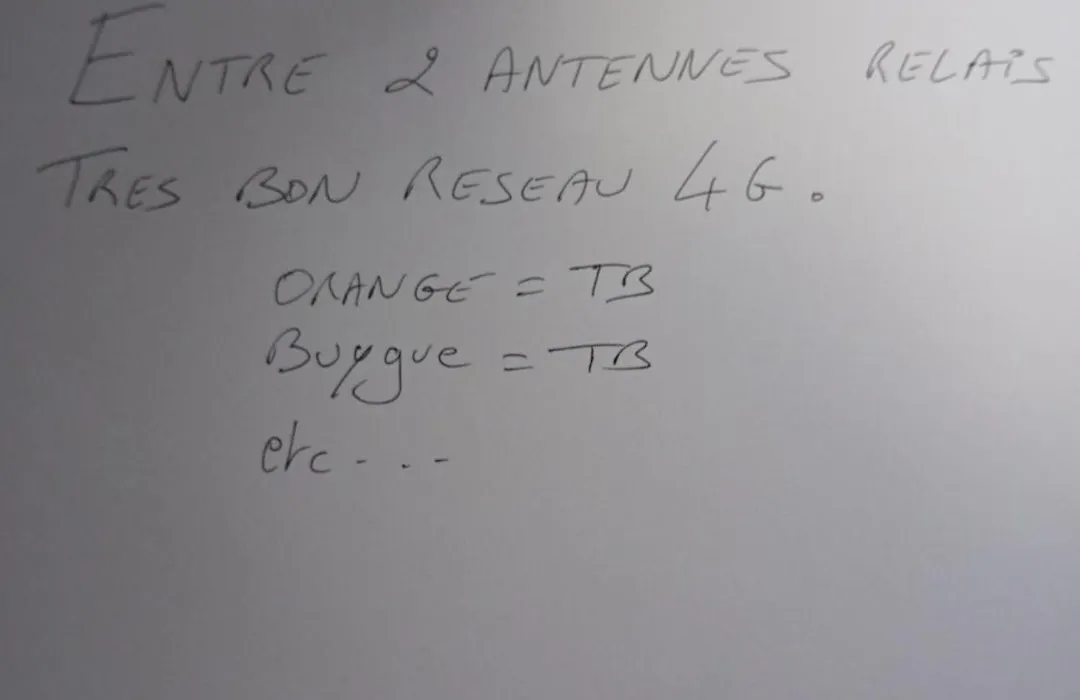 ENTRE 2 ANTENNES RELAiS
TRES BON RESEAU 4G.
ORANGE = TB
Buygue = TB
etc - . . -